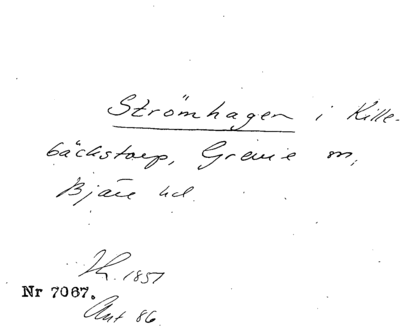 Strömhagen i Kille-
bäckstorp, Grevie m,
Bjäre hd.
Th. 1851
Nr 7067.
Ant 86